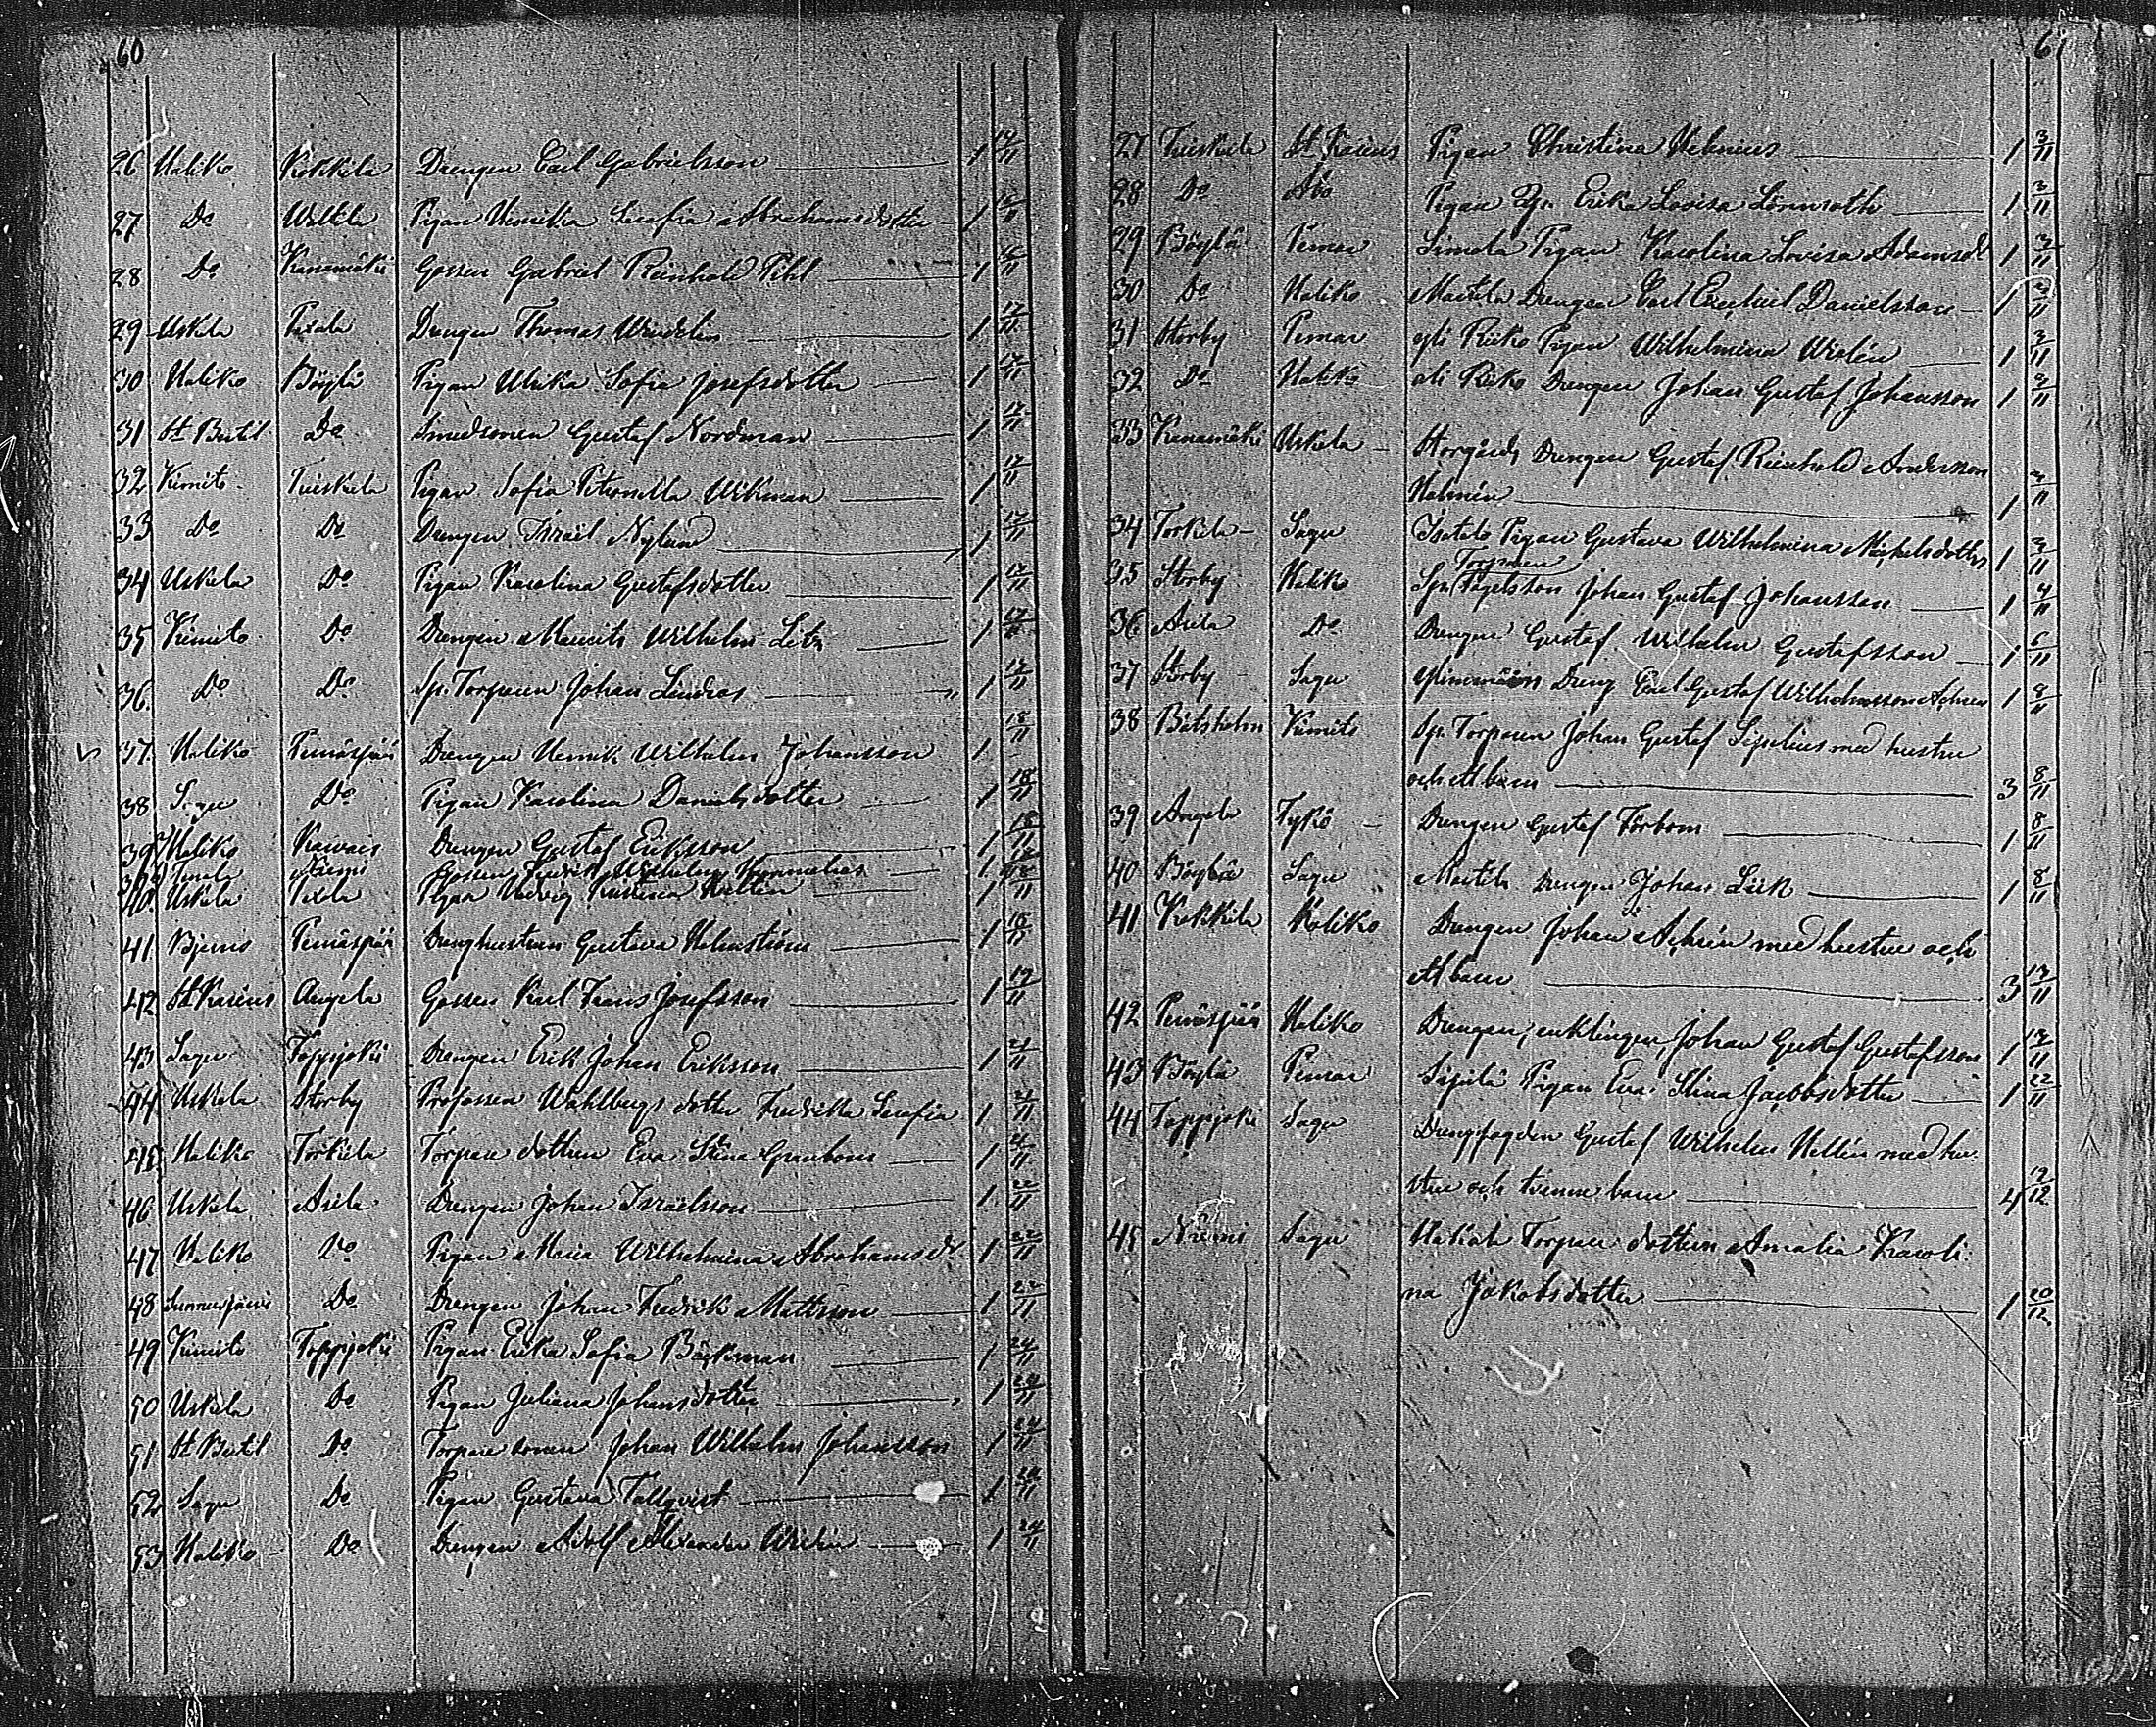 60
26 Haliko Kokkila Drengen Carl Gabrielsson 1 14/11
27 Do Waltila Pigan Henrika Serafia Abrahamsdotter 1 15/11
28 Do Kanamäki Gossen Gabriel Reinhold Pihl 1 16/11
29 Uskela Pixola Drengen Thomas Wendelin 1 17/11
30 Haliko Böylä Pigan Ulrika Sofia Josefsdotter 1 17/11
31 St Bertil Do Smedsonen Gustaf Nordman 1 17/11
32 Kimito Tuiskula Pigan Sofia Petronella Wikman 1 17/11
33 Do Do Drengen Israël Nylund 1 17/11
34 Uskela Do Pigan Karolina Gustafsdotter 1 17/11
35 Kimito Do Drengen Mauritz Wilhelm 1 17/11
36 Do Do Sp. Torparen Johan Lindros 1 17/11
37 Haliko Pemäspää Drengen Henrik Wilhelm Johansson 1 18/11
38 Sagu Do Pigan Karolina Danielsdotter 1 18/11
39 Haliko Kaivais Drengen Gustaf Eriksson 1 18/11
39 Niemi Gossen Fredrik Wilhelm 1
40 Uskela Pixola Pigan Hedvig 1 18/11
41 Bjerno Pemäspää Drenghustrun Gustava Holmström 1 18/11
42 St Karins Angela Gossen Karl Frans Josefsson 1 19/11
43 Sagu Toppjoki Drengen Erik Johan Eriksson 1 21/11
44 Uskela Storby Profossen Wahlbergs dotter Fredrika Serafia 1 21/11
45 Haliko Torkila Torpare dottren Eva Stina Granbom 1 21/11
46 Uskela Asila Drengen Johan Israëlsson 1 22/11
47 Haliko Do Pigan Maria Wilhelmina Abrahamsdr 1 22/11
48 Do Drengen Johan Fredrik Mattsson 1 22/11
49 Kimito Toppjoki Pigan Erika Sofia Bäckman 1 24/11
50 Uskela Do Pigan Juliana Johansdotter 1 24/11
51 St Bertil Do Torpare sonen Johan Wilhelm Johansson 1 24/11
52 Sagu Do Pigan Gustava Tallqvist 1 24/11
53 Haliko Do Drengen Adolf Alexander 1 24/11
61
27 Tuiskula St Karins Pigan Christina Helenius 1 3/11
28 Do Åbo Pigan Erika Lovisa Lönnroth 1 3/11
29 Böylä Pemar Simola Pigan Karolina Lovisa Adamsdr 1 3/11
30 Do Haliko Marttila Drengen Carl Ezechiel Danielsson 1 3/11
31 Storby Pemar Pigan Wilhelmina 1 3/11
32 Do Haliko Drengen Johan Gustaf Johansson 1 3/11
33 Kanamäki Uskela Storgårds Drengen Gustaf Reinhold Andersson
Holmén 1 3/11
34 Torkila Sagu Isotalo Pigan Gustava Wilhelmina Mickelsdotter 1 3/11
Torparen
35 Storby Haliko Johan Gustaf Johansson 1 4/11
36 Asila Do Drengen Gustaf Wilhelm Gustafsson 1 6/11
37 Storby Sagu Dreng Carl Gustaf Wilhelmsson 1 8/11
38 Båtsholm Kimito Sp. Torparen Johan Gustaf Sipelius med hustru
och ett barn 3 8/11
39 Angela Tykö Drengen Gustaf Törbom 1 8/11
40 Böylä Sagu Marttila Drengen Johan Liik 1 8/11
41 Kokkila Haliko Drengen Johan Achrén med hustru och
ett barn 3 13/11
42 Pemäspää Haliko Drengen, enklingen, Johan Gustaf Gustafsson 1 13/11
43 Böylä Pemar Sipilä Pigan Eva Stina Jacobsdotter 1 22/11
44 Toppjoki Sagu Drengfogden Gustaf Wilhelm Hellén med hu-
stru och tvenne barn 4 12
45 Niemi Sagu Torpare dottern Amalia Karoli-
na Jakobsdotter 1 20/12